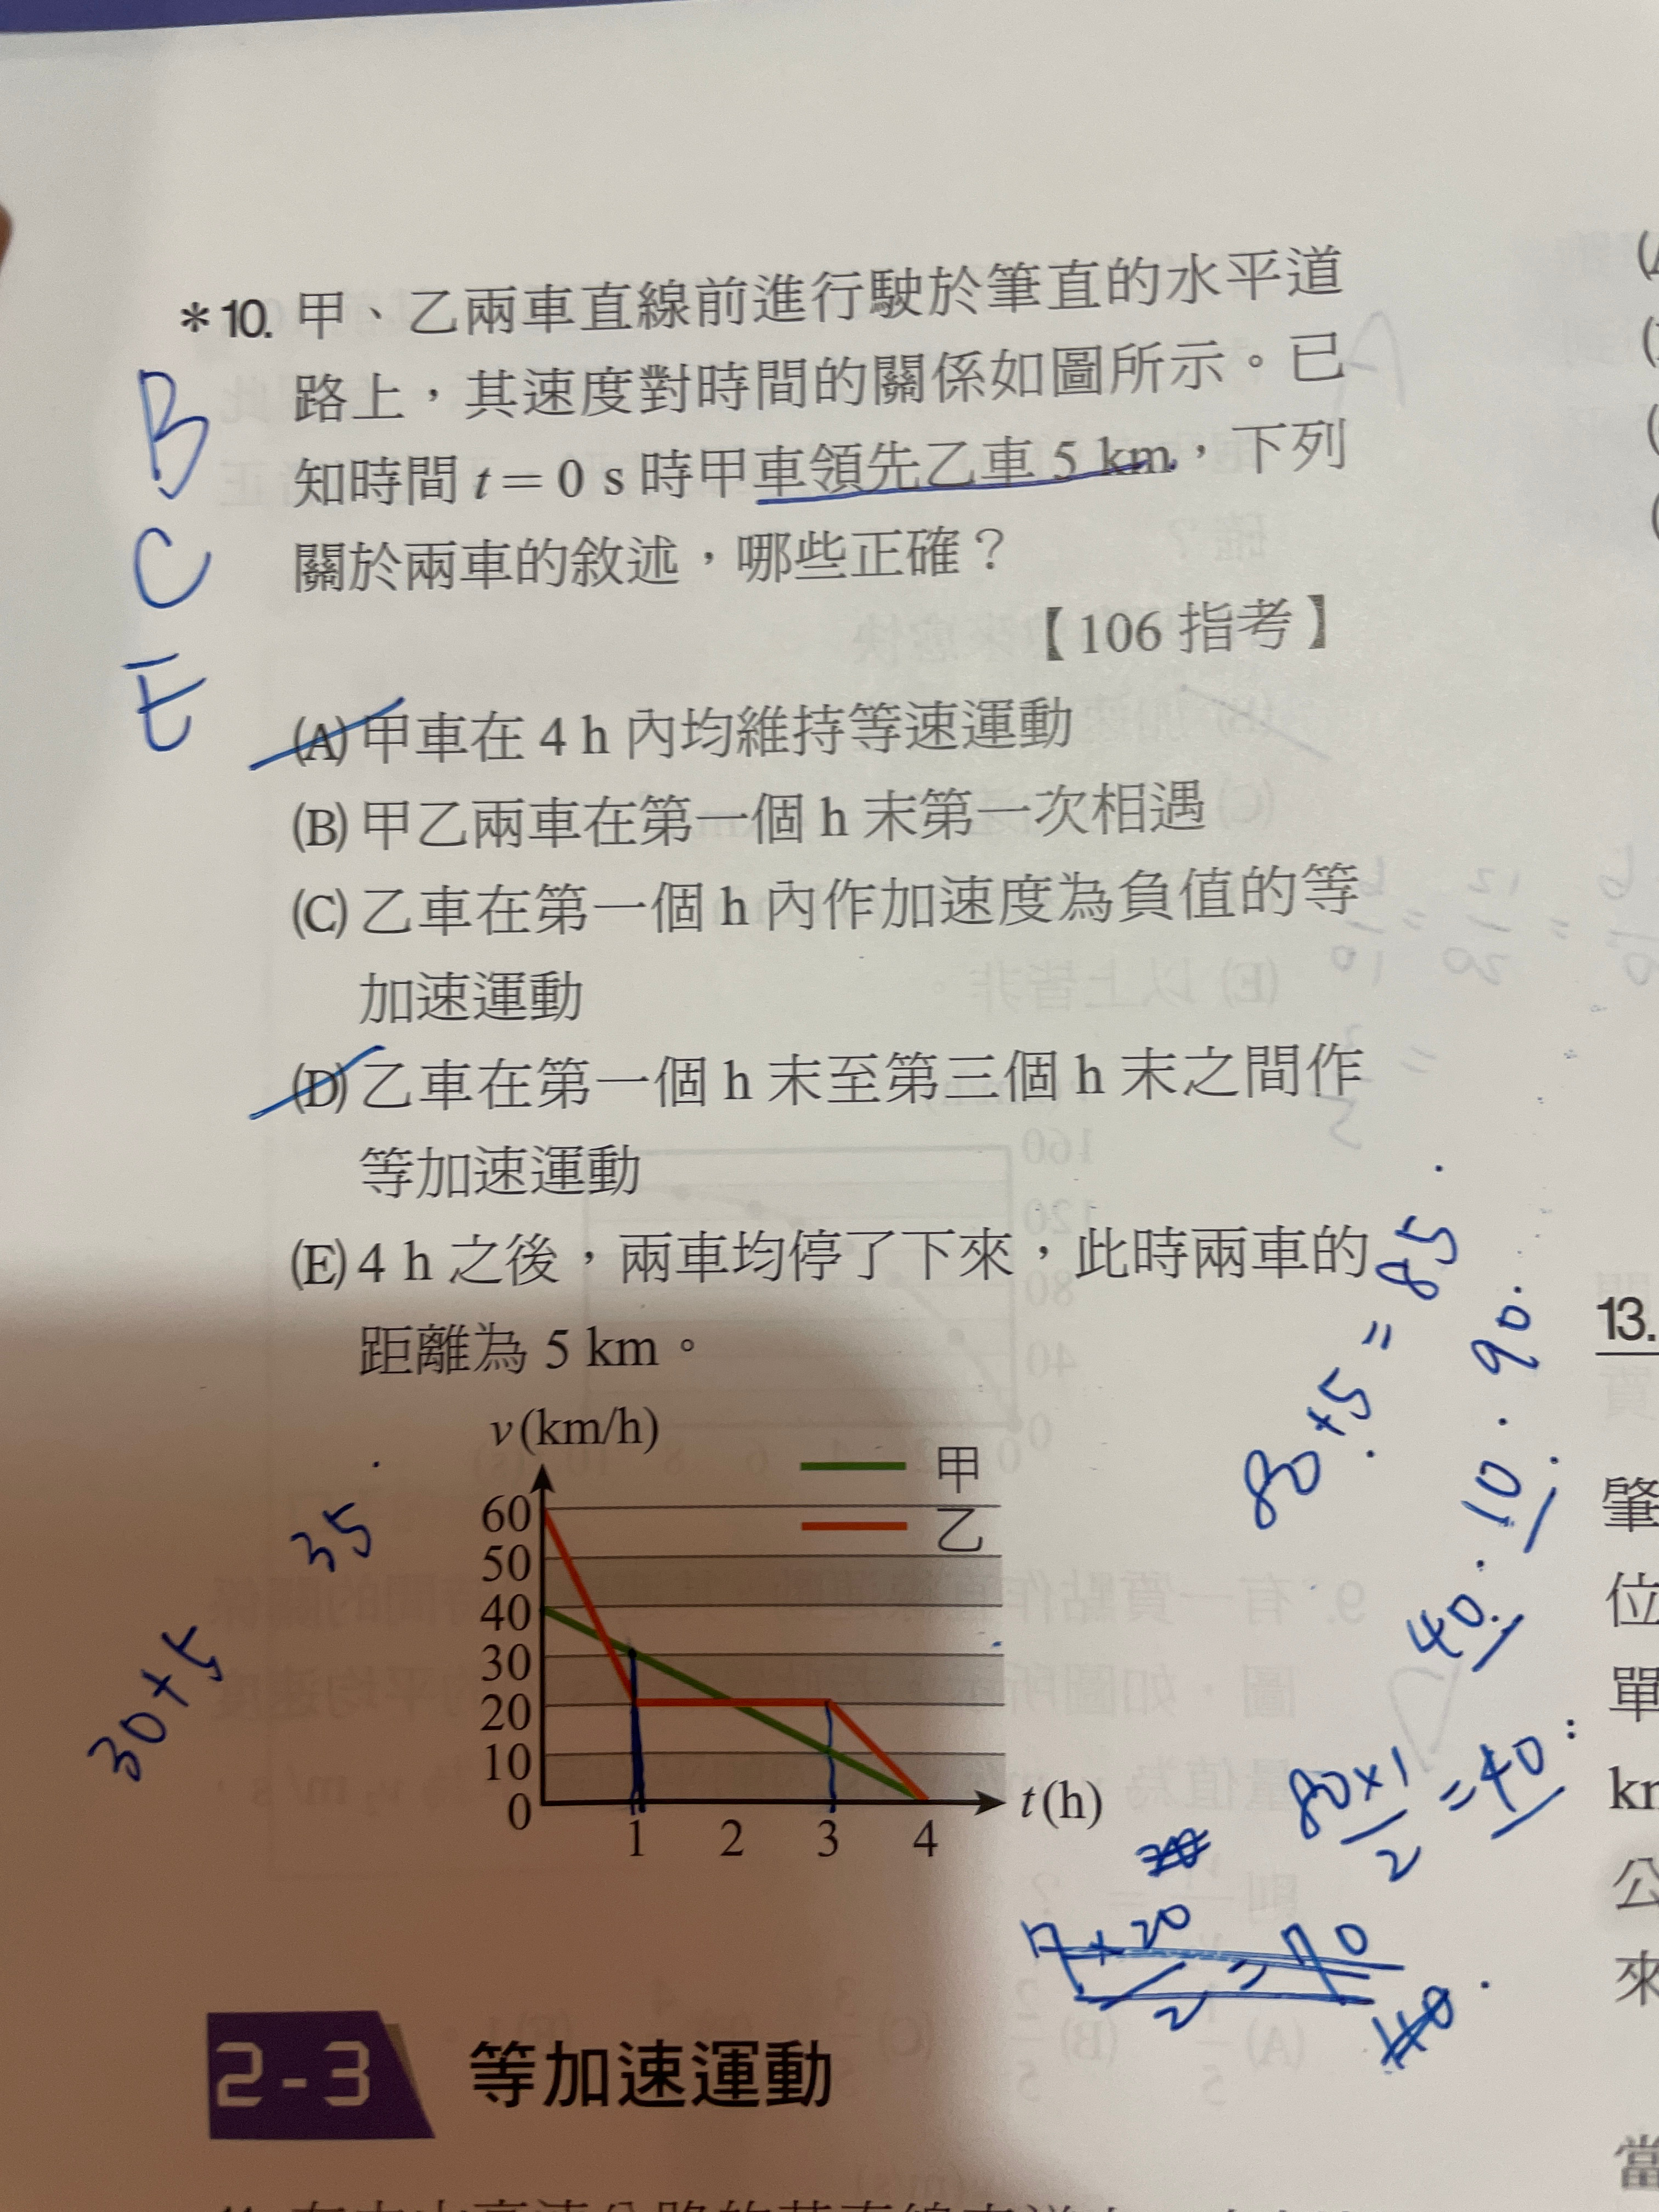 *10. 甲、乙兩車直線前進行駛於筆直的水平道
路上，其速度對時間的關係如圖所示。已
知時間 t = 0 s 時甲車領先乙車 5 km，下列
關於兩車的敘述，哪些正確？
【106 指考】
B
C
E
(A) 甲車在 4 h 內均維持等速運動
(B) 甲乙兩車在第一個 h 末第一次相遇
(C) 乙車在第一個 h 內作加速度為負值的等
加速運動
(D) 乙車在第一個 h 末至第三個 h 末之間作
等加速運動
(E) 4 h 之後，兩車均停了下來，此時兩車的
距離為 5 km。
v(km/h)
甲
乙
60
50
40
30
20
10
0
1 2 3 4
t(h)
35
30+5
80+5=85
40. 10. 90.
80×1/2=40
2-3 等加速運動
13.
肇
位
單
km
公
來
當